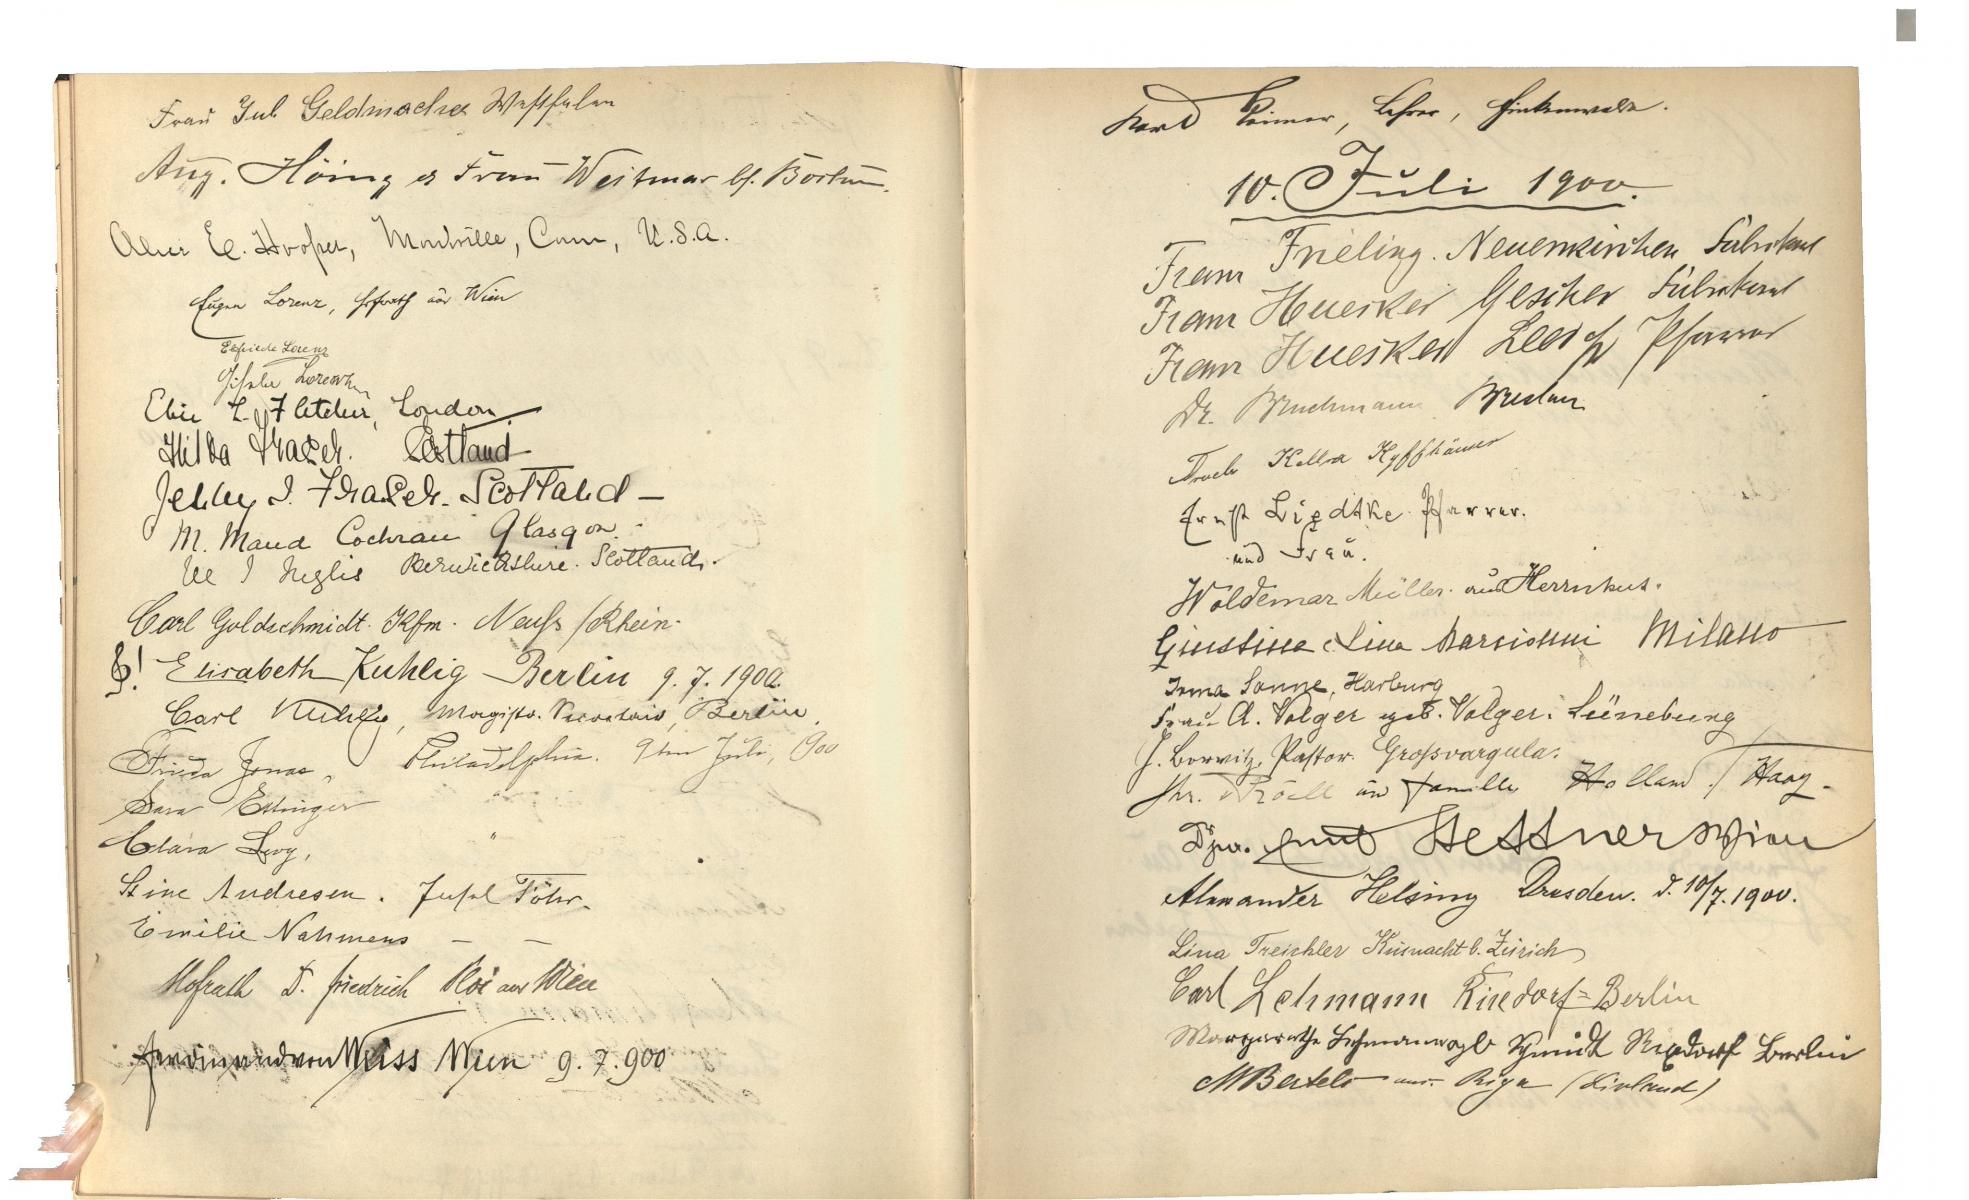 Frau Gub Geldmacher Westfalen
Aug. Höing & Frau Weitmar bf. Bochum.
Alice E. Hooper, Montville, Conn, U.S.A.
Eugen Lorenz, Hofrath aus Wien
Elfriede Lorenz
Gisela Lorenz
Elsie L. Fletcher, London
Hilda Fraser. Scotland
Jenny I. Fraser. Scotland —
M. Maud Cochran Glasgow.
I Inglis Berwickshire. Scotland.
Carl Goldschmidt. Kfm. Neuß / Rhein.
! Elisabeth Kuhlig — Berlin 9. 7. 1900.
Carl Kuhlig, Magistr. Secretair, Berlin.
Frieda Jonas, Philadelphia. 9ten Juli, 1900
Sara Ettinger "
Clara Levy, "
Stine Andresen. Insel Föhr.
Emilie Nahmens — —
Hofrath D. Friedrich aus Wien
Ferdinand von Weiss Wien 9. 7. 900
Karl, Lehrer, Finkenwalde.
10. Juli 1900.
Franz Frieling. Neuenkirchen Fabrikant
Franz Huesker Gescher Fabrikant
Franz Huesker Pfarrer
Dr. Bruchmann Breslau
Kella Kyffhäuser
Ernst Liedtke Pfarrer.
und Frau.
Woldemar Müller. aus Herrnhut.
Giustina & Lina Marcionni Milano
Irma Sonne, Harburg
Frau A. Volger geb. Volger. Lüneburg
J. Borvitz, Pastor. Großvargula.
Röell en famille Holland / Haag.
Emil Stettner Wien
Alexander Helsing Dresden. d. 10/7. 1900.
Lina Treichler Küsnacht b. Zürich
Carl Lehmann Rixdorf = Berlin
Margarethe Lehmann Schmidt Rixdorf Berlin
M Bertels aus Riga (Livland)